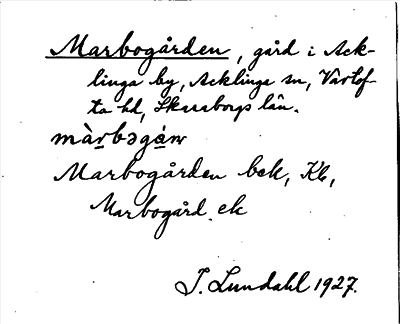 Marbogården, gård i Ack-
linga by, Acklinga sn, Vartof-
ta hd, Skaraborgs län.
màrbəgán
Marbogården bek, Kb,
Marbogård. ek
I. Lundahl 1927.